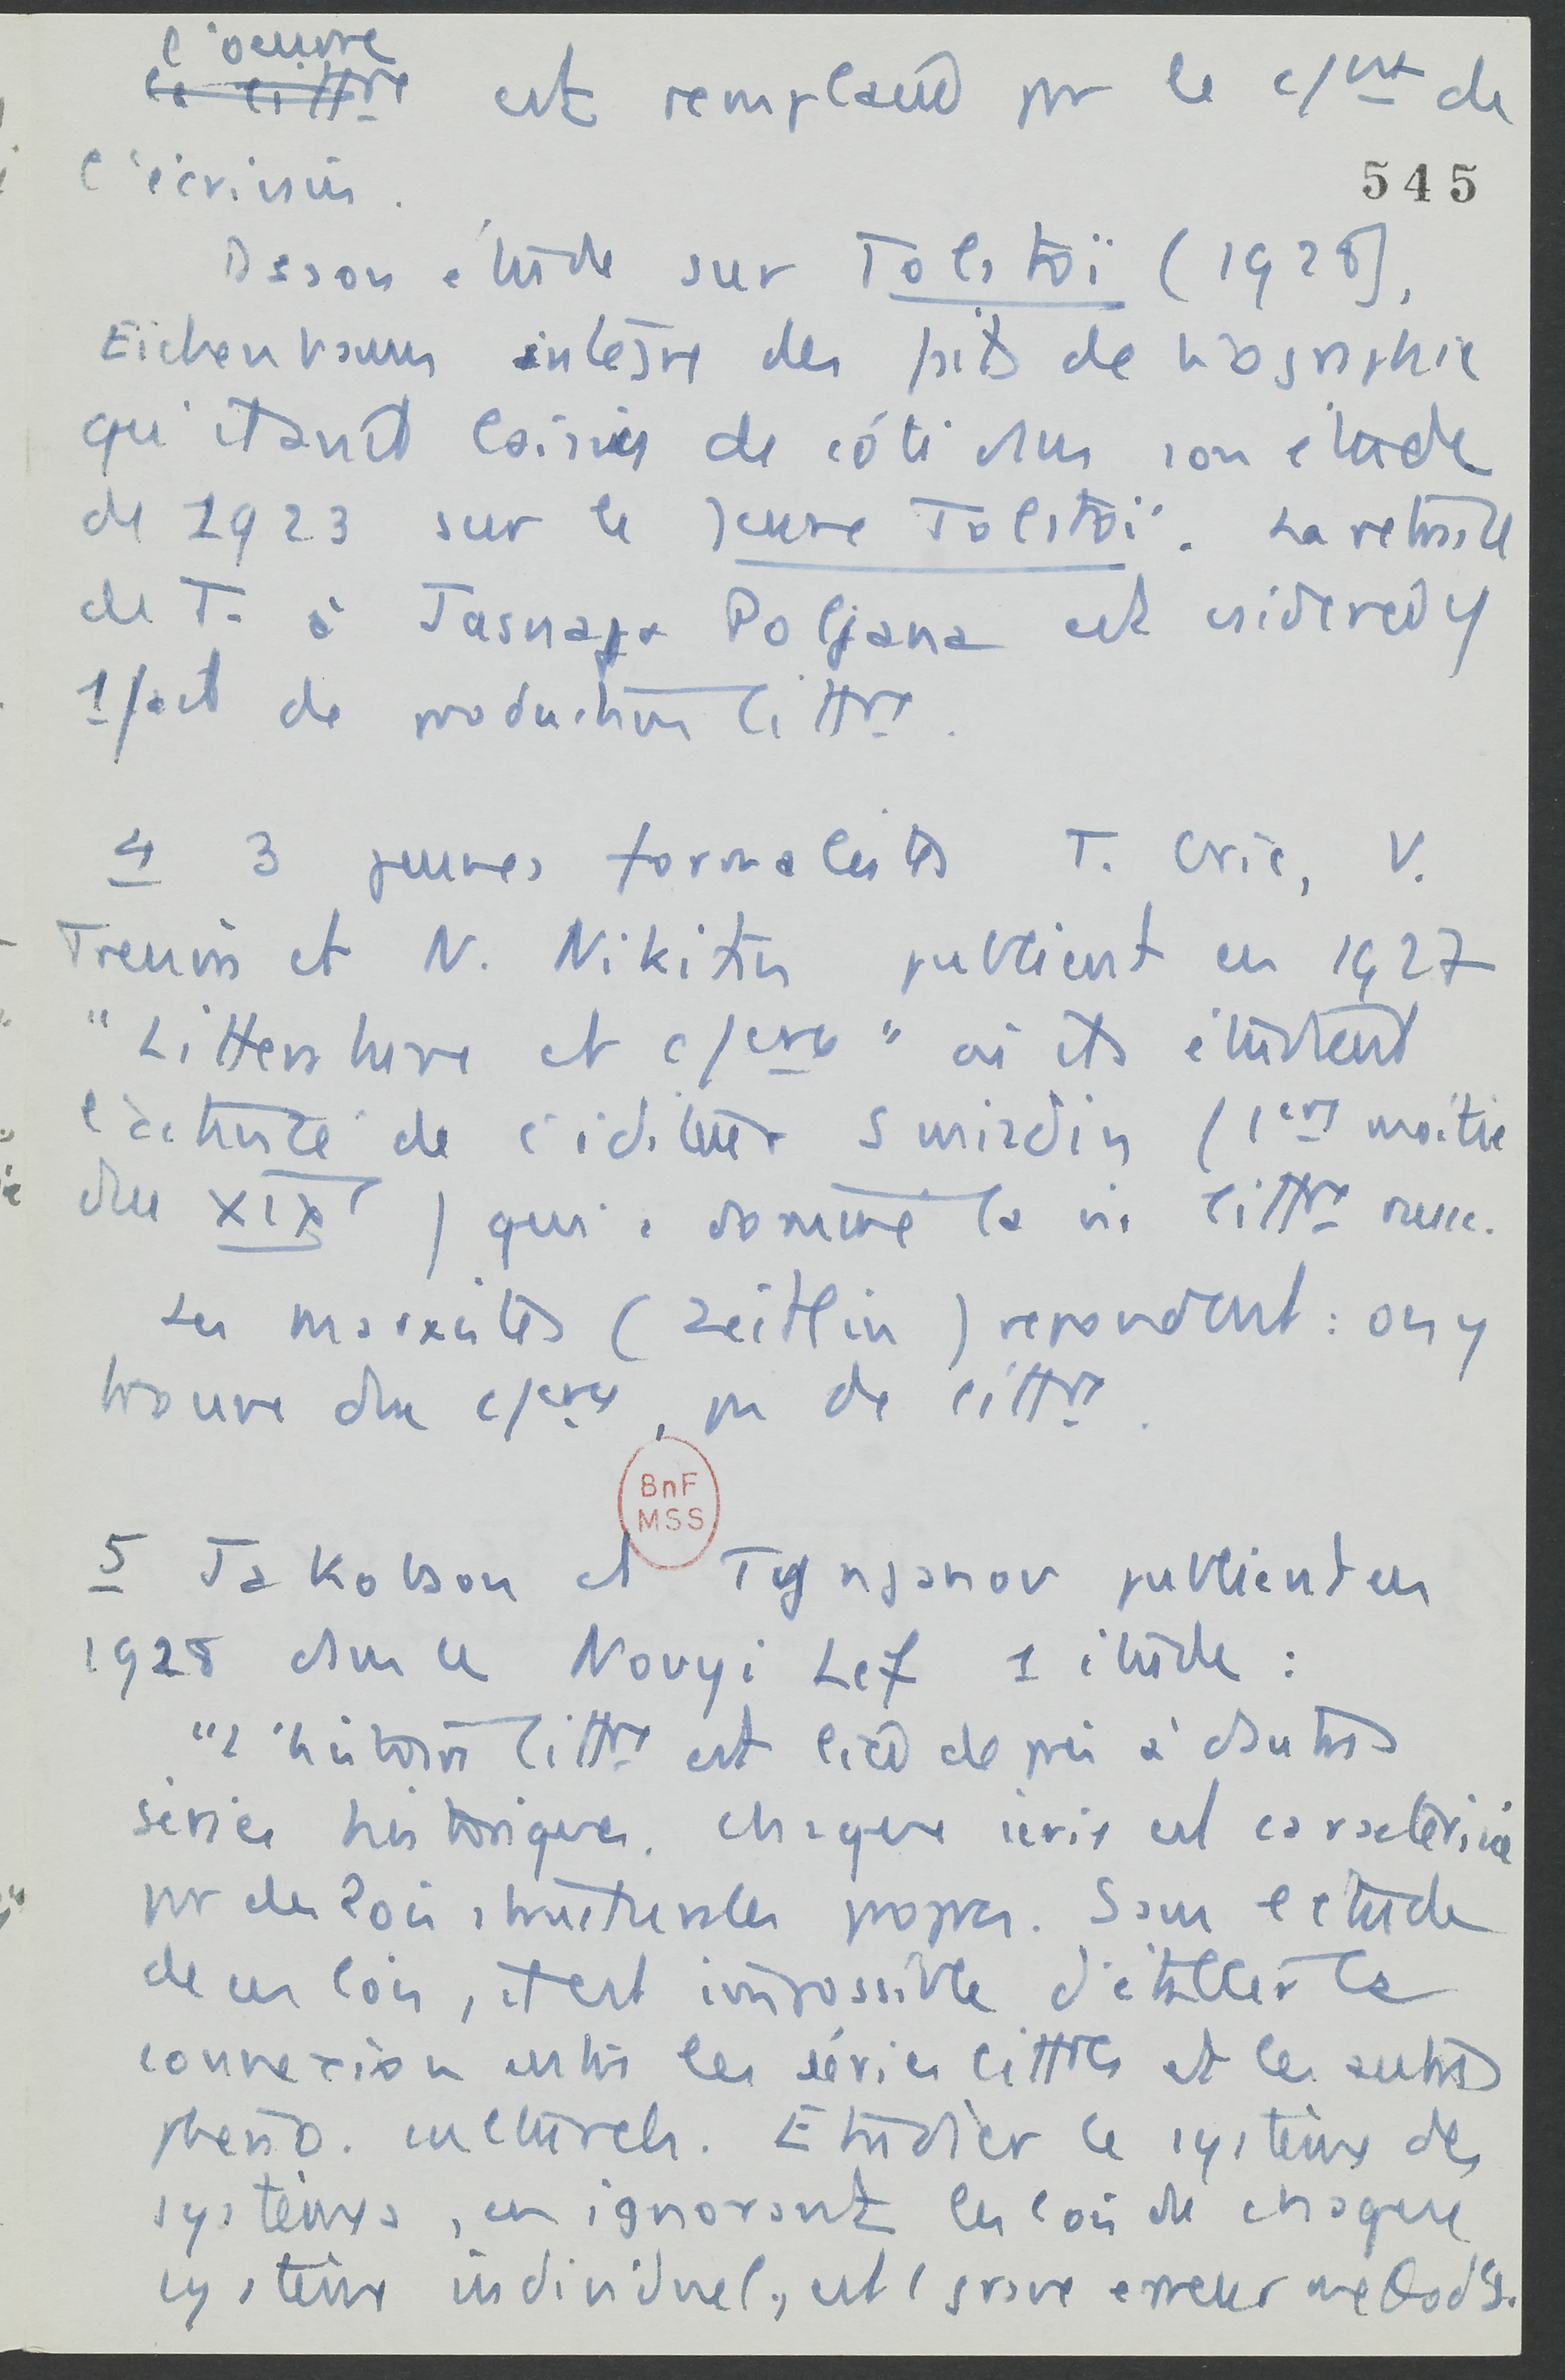 l'oeuvre
la littre est remplacée par le c/erce de
l'écrivain.
545
Ds son étude sur Tolstoï (1928),
Eichenbaum intègre des faits de biographie
qui étaient laissés de côté dans son étude
de 1923 sur le Jeune Tolstoï. La retraite
de T. à Jasnaja Poljana est considérée cô
1 fact de production littre.
4 3 jeunes formalistes T. Gric, V.
Trenin et N. Nikitin publient en 1927
"Littérature et c/erce" où ils étudient
l'activité de l'éditeur Smirdin (1ère moitié
du XIXe) qui a dominé la vie littre russe.
Les marxistes (Zeitlin) répondent : on y
trouve du c/erce, pas de littre.
BnF
MSS
5 Jakobson et Tynjanov publient en
1928 dans le Novyi Lef 1 étude :
"L'histoire littre est liée de près à d'autres
séries historiques. Chaque série est caractérisée
par des lois structurales propres. Sans l'étude
de ces lois, il est impossible d'établir la
connexion entre les séries littres et les autres
phéno. culturels. Etudier le système des
systèmes, en ignorant les lois de chaque
système individuel, est 1 grave erreur méthodo.